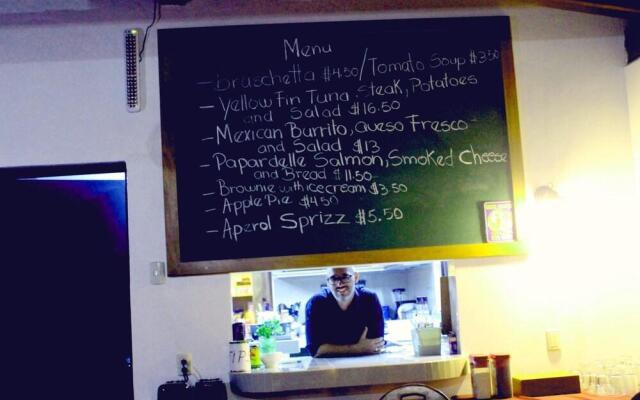 Menu
- Bruschetta $4.50/Tomato Soup $3.50
- Yellow Fin Tuna Steak, Potatoes
and Salad $16.50
- Mexican Burrito, Queso Fresco
and Salad $13
- Papardelle Salmon, Smoked Cheese
and Bread $11.50
- Brownie with ice cream $3.50
- Apple Pie $4.50
- Aperol Sprizz $5.50